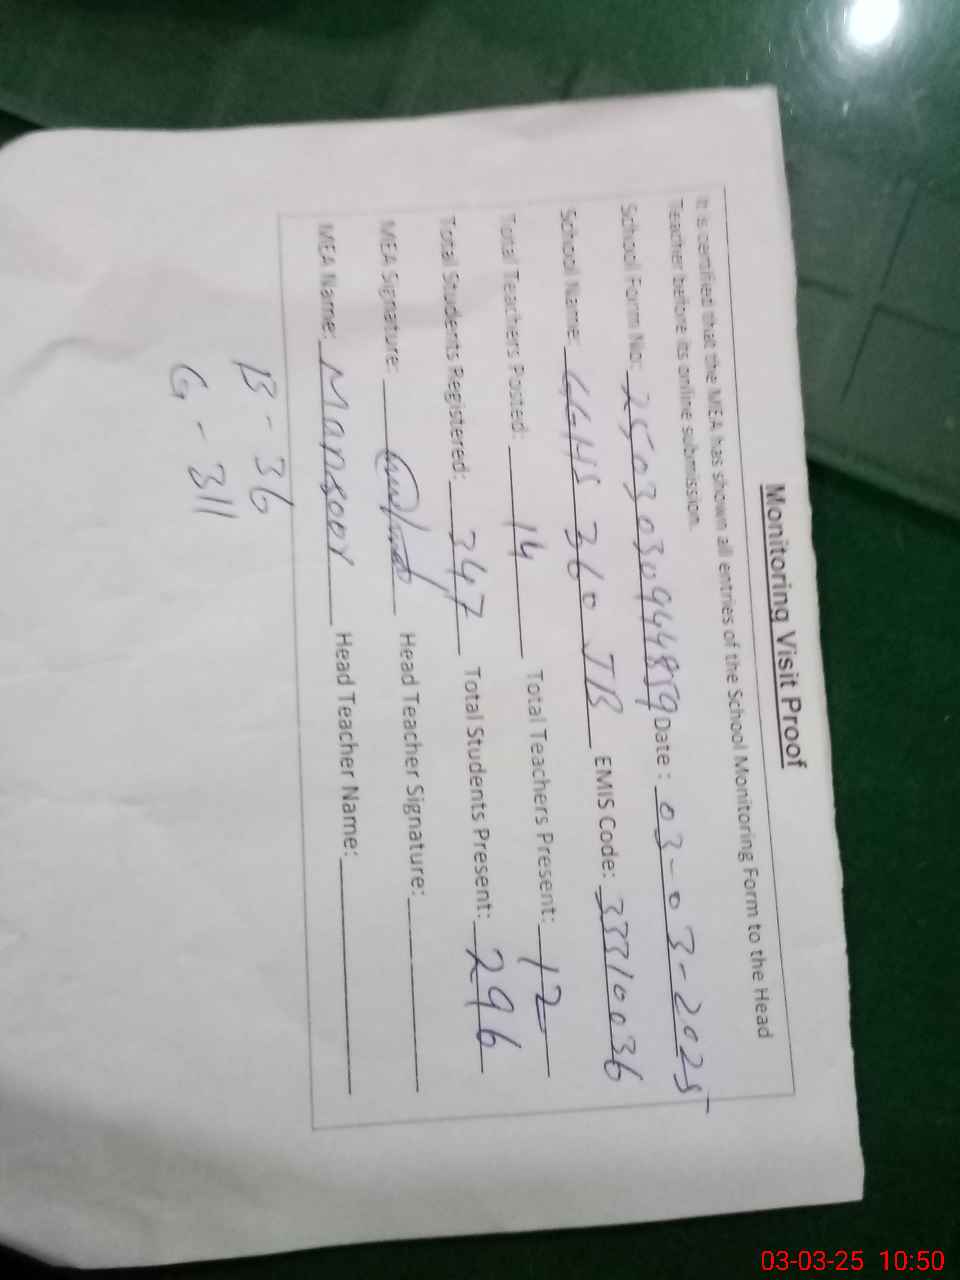 Monitoring Visit Proof
It is certified that the MEA has shown all entries of the School Monitoring Form to the Head
Teacher before its online submission.
School Form No: 25030309444859 Date : 03-03-2025
School Name: GGHS 360 JB EMIS Code: 33310036
Total Teachers Posted: 14 Total Teachers Present: 12
Total Students Registered: 347 Total Students Present: 296
MEA Signature: Head Teacher Signature:
MEA Name: Mansoor Head Teacher Name:
B - 36
G - 311
03-03-25 10:50